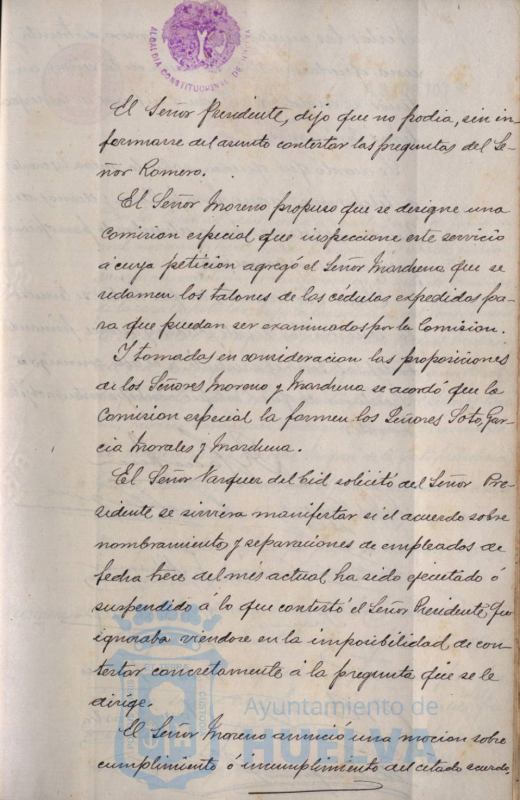 ALCALDIA CONSTITUCIONAL DE HUELVA
El Señor Presidente, dijo que no podia, sin in-
formarse del asunto contestar las preguntas del Se-
ñor Romero.
El Señor Moreno propuso que se designe una
Comision especial que inspeccione este servicio
á cuya peticion agregó el Señor Marchena que se
reclamen los talones de las cédulas expedidas pa-
ra que puedan ser examinados por la Comision.
Y tomadas en consideracion las proposiciones
de los Señores Moreno y Marchena se acordó que la
Comision especial la formen los Señores Soto, Gar-
cia Morales y Marchena.
El Señor Vazquez del Cid solicitó del Señor Pre-
sidente se sirviera manifestar si el acuerdo sobre
nombramiento y separaciones de empleados de
fecha trece del mes actual ha sido ejecutado ó
suspendido á lo que contestó el Señor Presidente, que
ignoraba viendose en la imposibilidad de con-
testar concretamente á la pregunta que se le
dirige.
Ayuntamiento de
HUELVA
El Señor Moreno anunció una mocion sobre
cumplimiento ó incumplimiento del citado acuerdo,